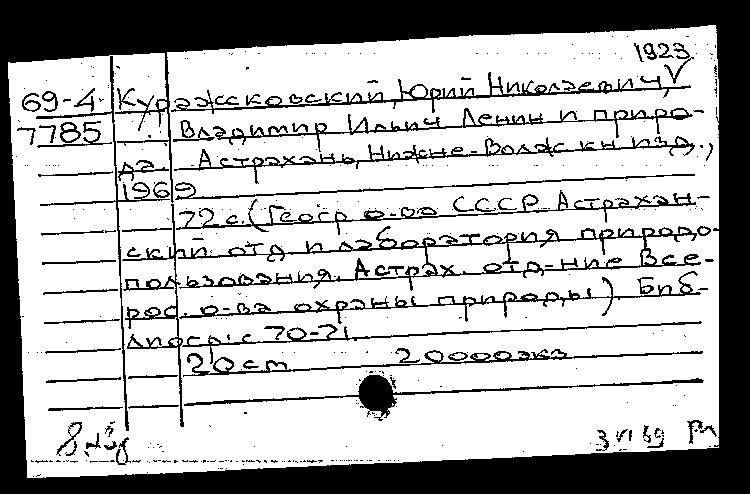 1923
69-4 Куражсковский, Юрий Николаевич, V
7785 Владимир Ильич Ленин и приро-
да. Астрахань, Нижне-Волжск кн изд.,
1969
72 с. (Геогр о-во СССР Астрахан-
ский отд и лаборатория природо-
пользования. Астрах. отд-ние Все-
рос. о-ва охраны природы). Биб-
лиогр: с 70-71.
20 см 20000экз
3 VI 69